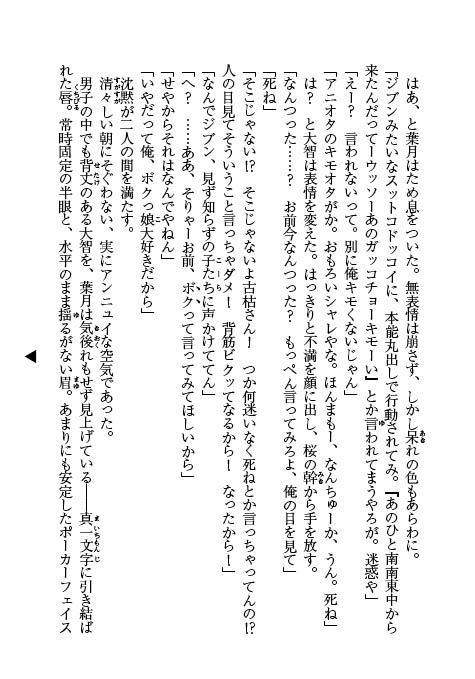 はあ、と葉月はため息をついた。無表情は崩さず、しかし呆れの色もあらわに。
「ジブンみたいなスットコドッコイに、本能丸出しで行動されてみ。『あのひと南南東中から
来たんだってーウッソーあのガッコチョーキモーい』とか言われてまうやろが。迷惑や」
「えー？　言われないって。別に俺キモくないじゃん」
「アニオタのキモオタがか。おもろいシャレやな。ほんまもー、なんちゅーか、うん。死ね」
は？　と大智は表情を変えた。はっきりと不満を顔に出し、桜の幹から手を放す。
「なんつった……？　お前今なんつった？　もっぺん言ってみろよ、俺の目を見て」
「死ね」
「そこじゃない!?　そこじゃないよ古枯さん！　つか何迷いなく死ねとか言っちゃってんの!?
人の目見てそういうこと言っちゃダメ！　背筋ビクッてなるから！　なったから！」
「なんでジブン、見ず知らずの子たちに声かけててん」
「へ？　……ああ、そりゃーお前、ボクって言ってみてほしいから」
「せやからそれはなんでやねん」
「いやだって俺、ボクっ娘大好きだから」
沈黙が二人の間を満たす。
清々しい朝にそぐわない、実にアンニュイな空気であった。
男子の中でも背丈のある大智を、葉月は気後れもせず見上げている――真一文字に引き結ば
れた唇。常時固定の半眼と、水平のまま揺るがない眉。あまりにも安定したポーカーフェイス